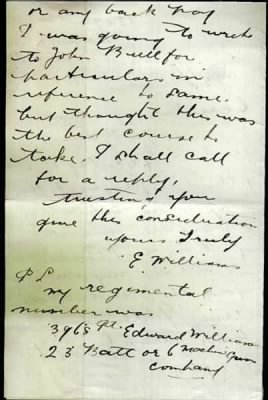 or any back pay
I was going to write
to John Bull for
particulars in
reference to same.
but thought this was
the best course to
take. I shall call
for a reply,
trusting you
give this consideration
yours Truly
E Williams
P S
my regimental
number was
3968 Pt. Edward Williams
23 Batt or 6 Machine Gun
Company